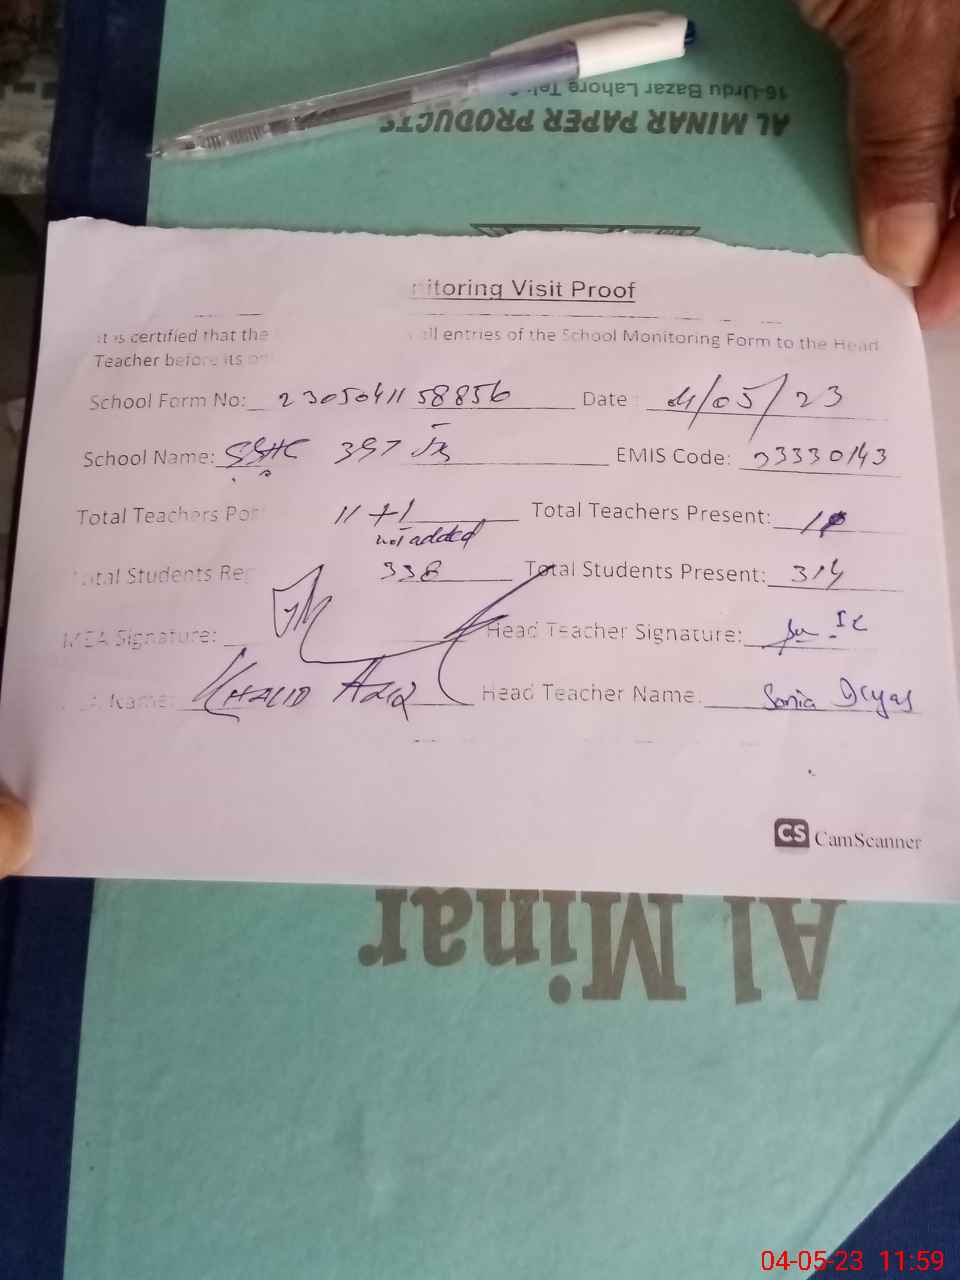 16-Urdu Bazar Lahore Tel:
AL MINAR PAPER PRODUCTS
nitoring Visit Proof
It is certified that the all entries of the School Monitoring Form to the Head
Teacher before its
School Form No: 23050411 58856 Date: 04/05/23
School Name: 397 EMIS Code: 33330143
Total Teachers Pos 11+1 Total Teachers Present:
not added
Total Students Reg 338 Total Students Present: 314
MEA Signature: Head Teacher Signature:
Name: KHALID Head Teacher Name. Sonia
CS CamScanner
Al Minar
04-05-23 11:59